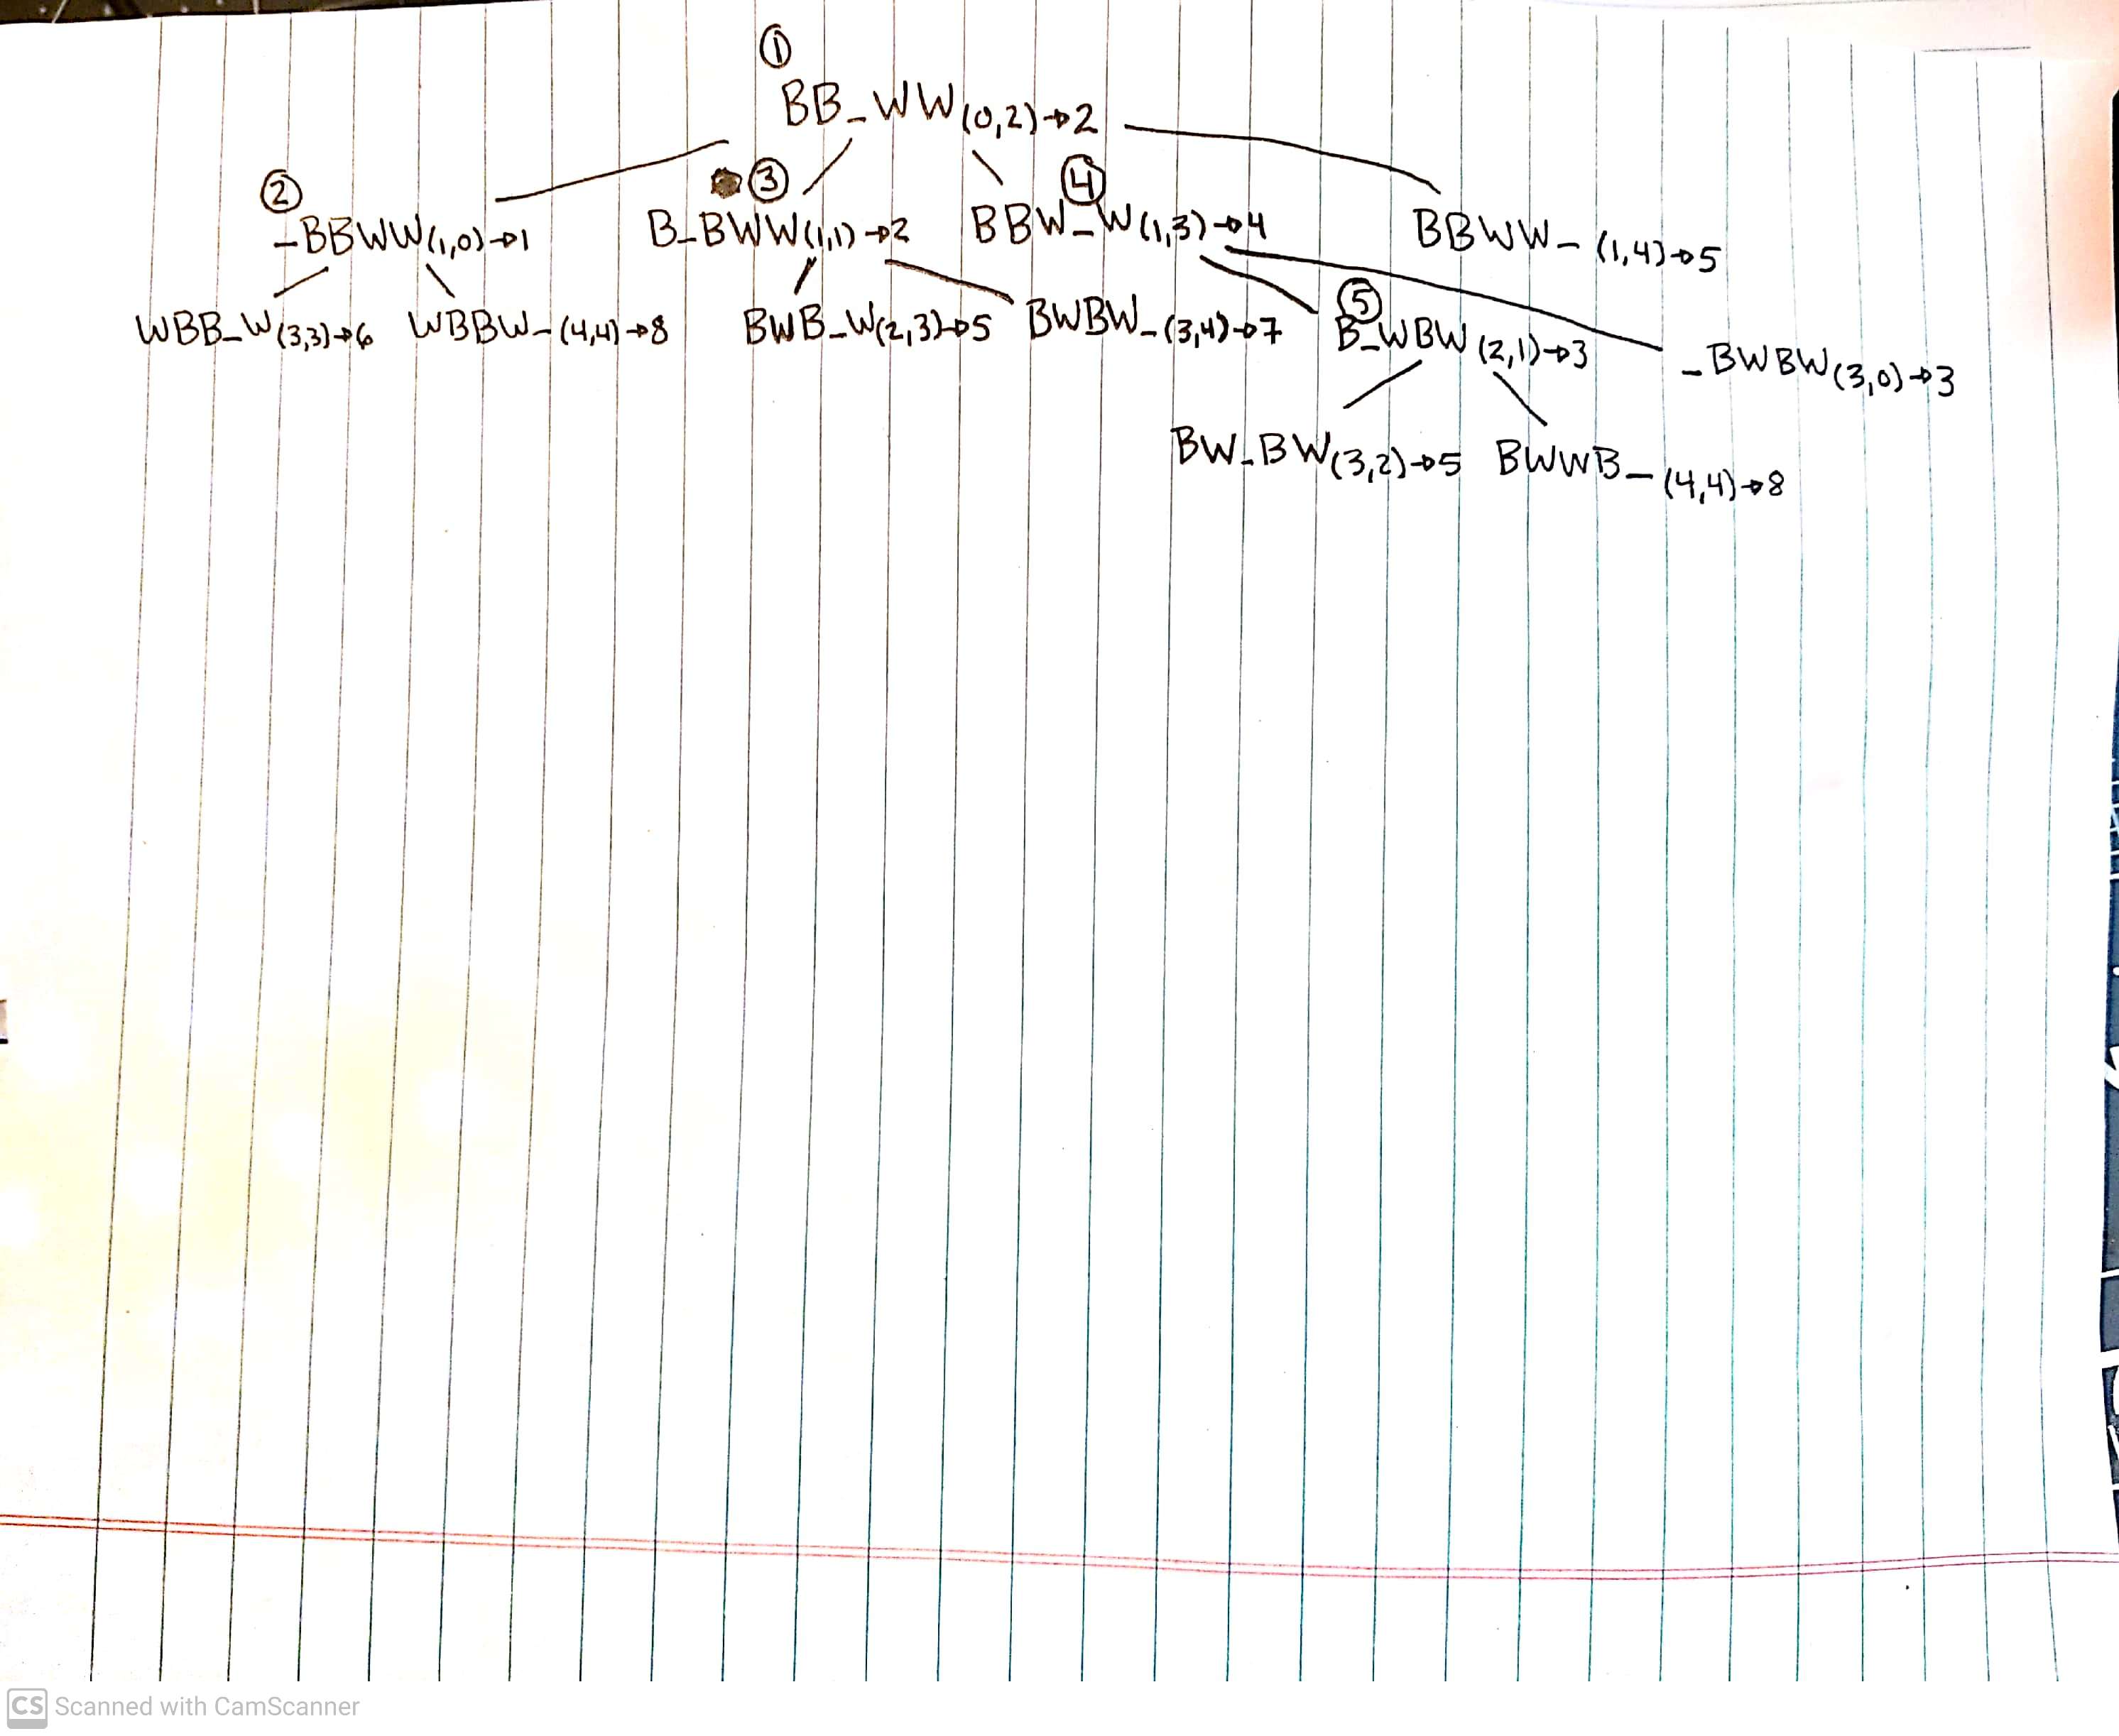 ①
BB_WW (0,2)→2
② ③ ④
_BBWW (1,0)→1 B_BWW (1,1)→2 BBW_W (1,3)→4 BBWW_ (1,4)→5
⑤
WBB_W (3,3)→6 WBBW_ (4,4)→8 BWB_W (2,3)→5 BWBW_ (3,4)→7 B_WBW (2,1)→3 _BWBW (3,0)→3
BW_BW (3,2)→5 BWWB_ (4,4)→8
CS Scanned with CamScanner